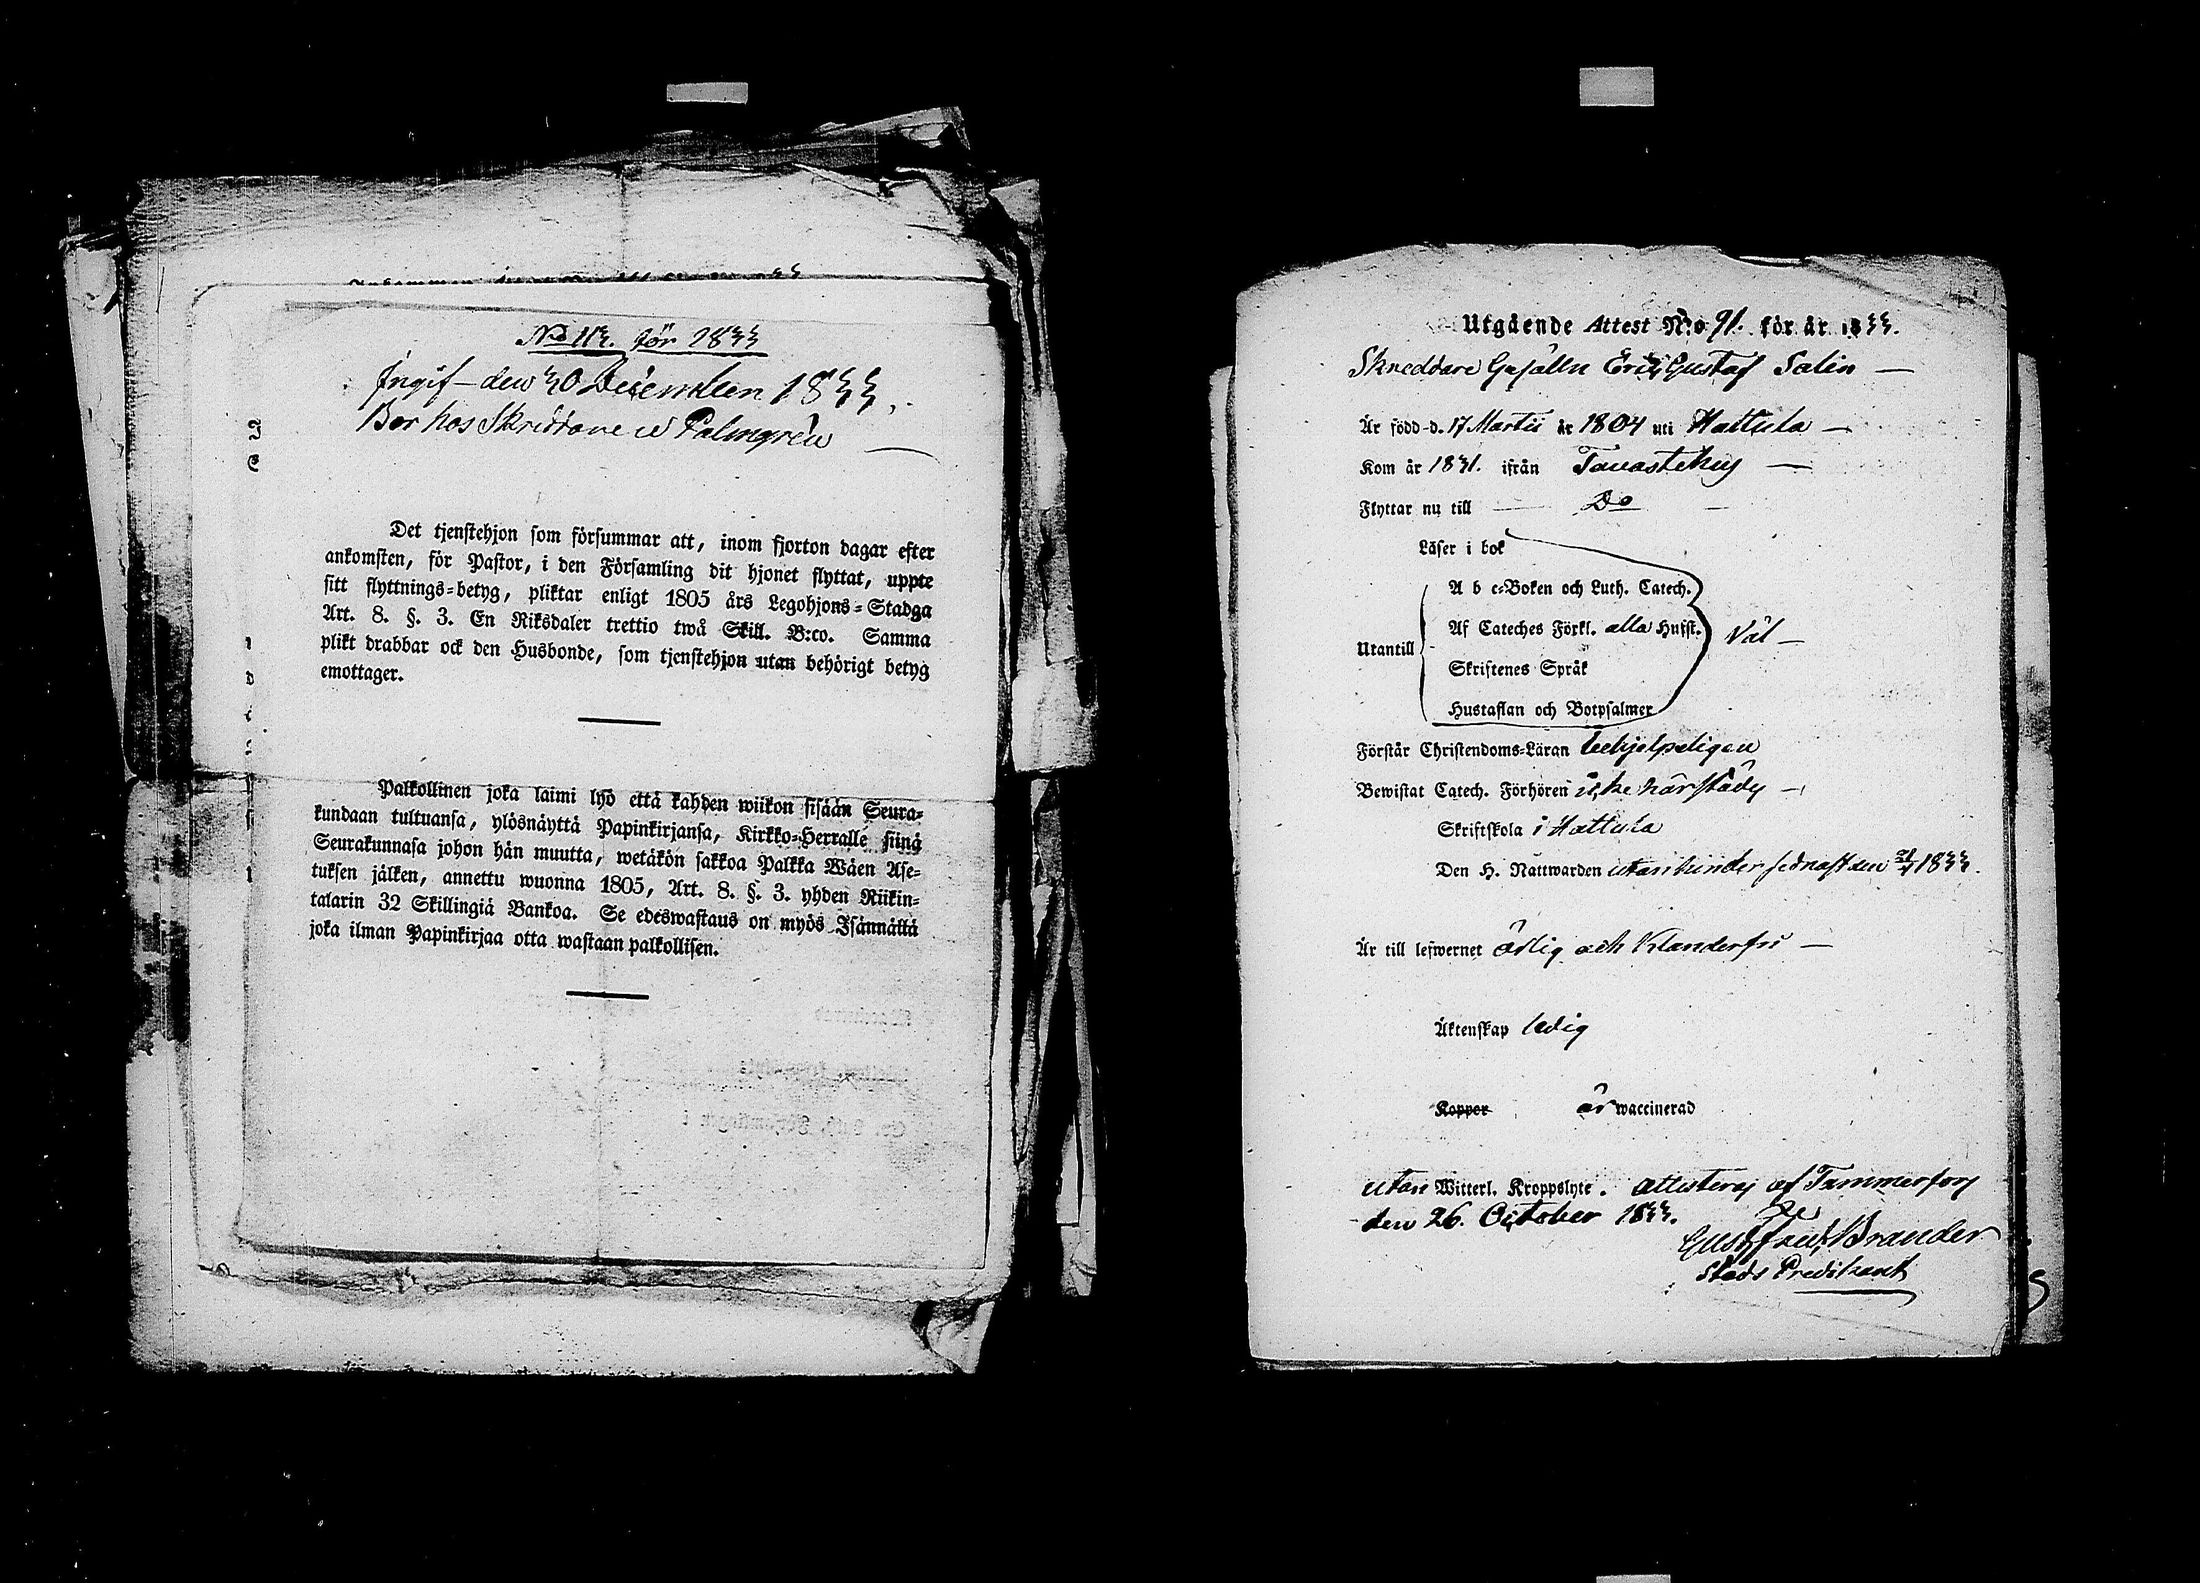 No 113. för 1833
Ingif. den 30 December 1833.
Bor hos Skräddare Palmgrén
Det tjenstehjon som försummar att, inom fjorton dagar efter
ankomsten, för Pastor, i den Församling dit hjonet flyttat, uppte
sitt flyttnings-betyg, pliktar enligt 1805 års Legohjons-Stadga
Art. 8. §. 3. En Riksdaler trettio twå Skill. B:co. Samma
plikt drabbar ock den Husbonde, som tjenstehjon utan behörigt betyg
emottager.
Palkollinen joka laimi lyö että kahden wiikon sisään Seura-
kundaan tultuansa, ylösnäyttä Papinkirjansa, Kirkko-Herralle siinä
Seurakunnasa johon hän muutta, wetäkön sakkoa Palkka Wäen Ase-
tuksen jälken, annettu wuonna 1805, Art. 8. §. 3. yhden Riikin-
talarin 32 Skillingiä Bankoa. Se edeswastaus on myös Isännällä
joka ilman Papinkirjaa otta wastaan palkollisen.
Utgående Attest N:o 91. för år 1833.
Skreddare Gesälln Eric Gustaf Salin
Är född d. 17 Martii år 1804 uti Hattula
Kom år 1831. ifrån Tavastehus
Flyttar nu till Do
Läser i bok
A b c-Boken och Luth. Catech.
Af Cateches Förkl. alla Hufst.
Utantill Väl
Skriftenes Språk
Hustaflan och Botpsalmer
Förstår Christendoms-Läran behjelpeligen
Bewistat Catech. Förhören icke härstädes
Skriftskola i Hattula
Den H. Nattwarden utan hinder sednast den 1833.
Är till lefwernet ärlig och klanderfri
Äktenskap ledig
Koppor är waccinerad
utan Witterl. Kroppslyte. Attesteras af Tammerfors
den 26. October 1833.
Gust. Fred. Brander
Stads Predikant